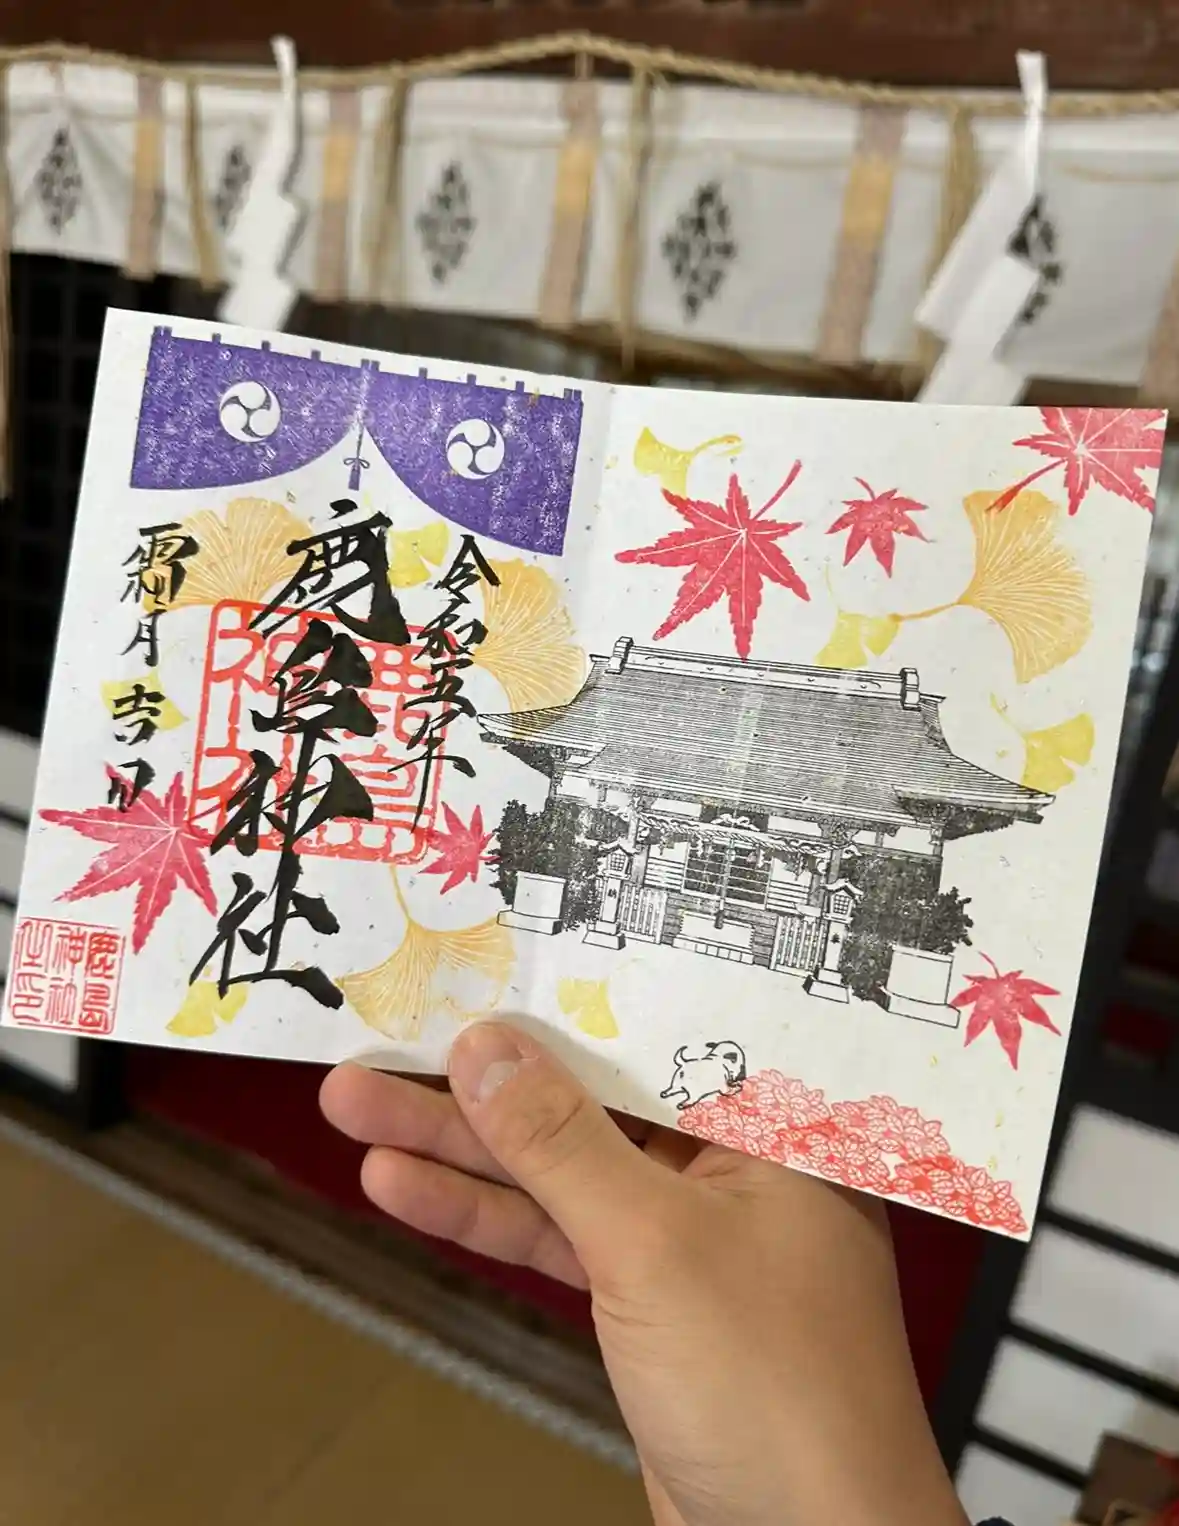 令和五年
鹿島神社
霜月吉日
鹿島
神社
鹿島
神社
之印